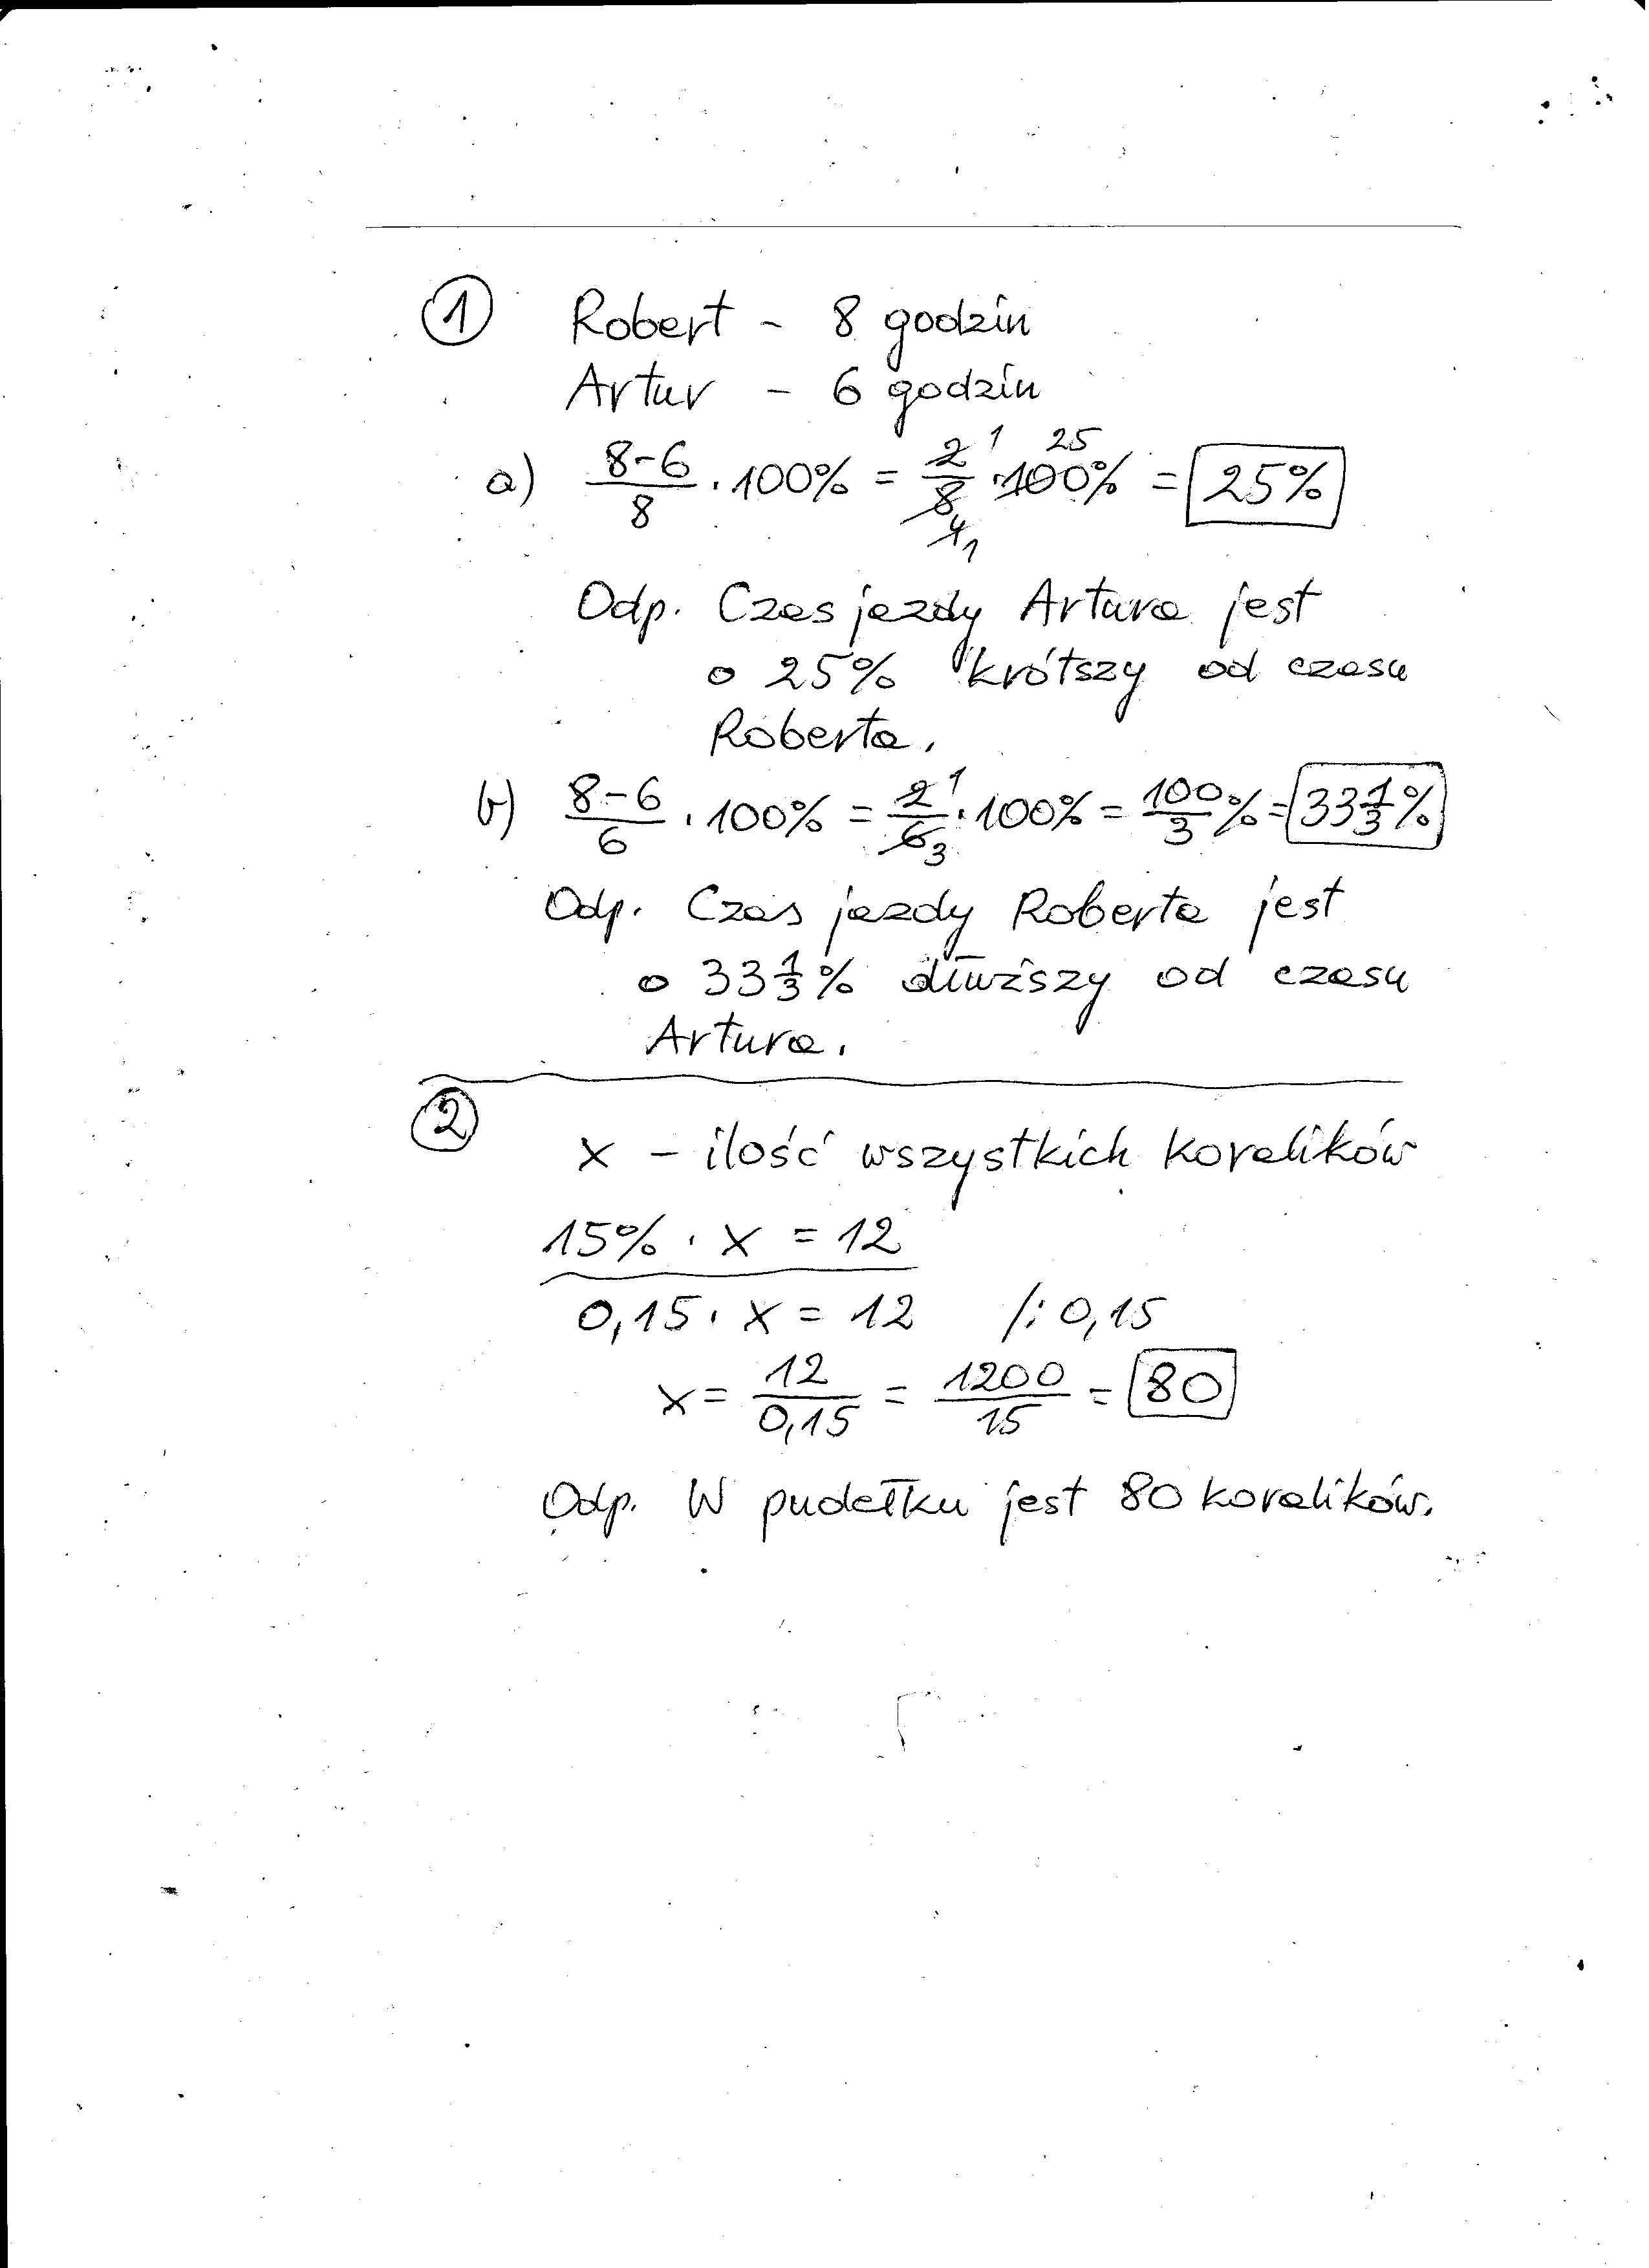 ① Robert - 8 godzin
Artur - 6 godzin
a) 8-6/8 · 100% = 2 1/8 4 1 · 100 25 % = 25%
Odp. Czas jazdy Artura jest
o 25% krótszy od czasu
Roberta.
b) 8-6/6 · 100% = 2 1/6 3 · 100% = 100/3 % = 33 1/3 %
Odp. Czas jazdy Roberta jest
o 33 1/3 % dłuższy od czasu
Artura.
② x - ilość wszystkich koralików
15% · x = 12
0,15 · x = 12 /: 0,15
x = 12/0,15 = 1200/15 = 80
Odp. W pudełku jest 80 koralików.